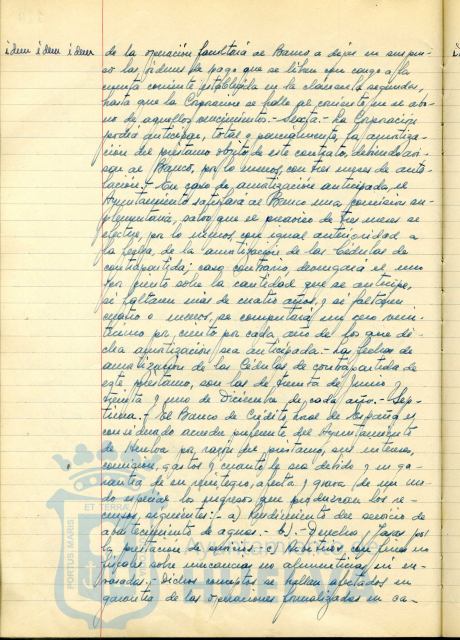 idem idem idem
de la operación facultará al Banco a dejar en suspen-
so las órdenes de pago que se libren con cargo a la
cuenta corriente establecida en la cláusula segunda,
hasta que la Corporación se halle al corriente en el abo-
no de aquellos vencimientos.- Sexta.- La Corporación
podrá anticipar, total o parcialmente, la amortiza-
ción del préstamo objeto de este contrato, debiendo avi-
sar al Banco, por lo menos, con tres meses de ante-
lación.- En caso de amortización anticipada, el
Ayuntamiento satisfará al Banco una comisión su-
plementaria, salvo que el preaviso de tres meses se
efectúe, por lo menos, con igual anterioridad a
la fecha, de la amortización de las Cédulas de
contrapartida; caso contrario, devengará el uno
por ciento sobre la cantidad que se anticipe,
si faltasen más de cuatro años, y si faltasen
cuatro o menos, se computará un cero vein-
ticinco por ciento por cada año de los que di-
cha amortización sea anticipada.- Las fechas de
amortización de las Cédulas de contrapartida de
este préstamo, son las de treinta de Junio y
treinta y uno de Diciembre de cada año.- Sép-
tima.- El Banco de Crédito Local de España es
considerado acreedor preferente del Ayuntamiento
de Huelva por razón del préstamo, sus intereses,
comisión, gastos y cuanto le sea debido y en ga-
rantía de su reintegro, afecta y grava de un mo-
do especial los ingresos que produzcan los re-
cursos siguientes: - a) Rendimiento del servicio de
abastecimiento de aguas.- b).- Derechos y Tasas por
la prestación de servicios.- c) Arbitrios con fines no
fiscales sobre mercancías no alimenticias ni en-
vasadas.- Dichos conceptos se hallan afectados en
garantía de las operaciones formalizadas en ca-
PORTUS MARIS
ET TERRÆ
Ayuntamiento de